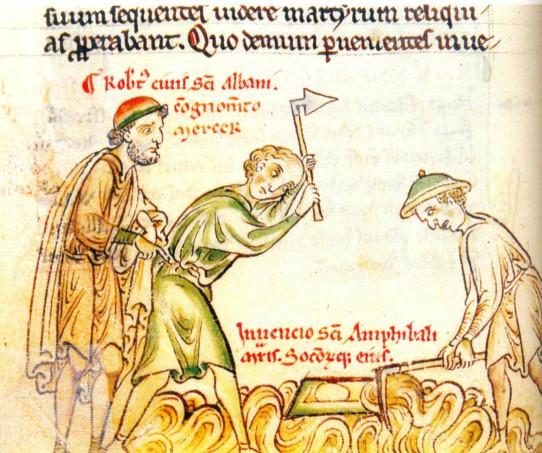 suum sequentes uidere martyrum reliqui
as ꝓperabant. Quo demum ꝑuenientes inue
¶ Robt᷑ ciuis sc̄i Albani.
cognom̄to
mercer
Inuencio sc̄i Amphibali
mr̄is. Socioꝝq; eius.